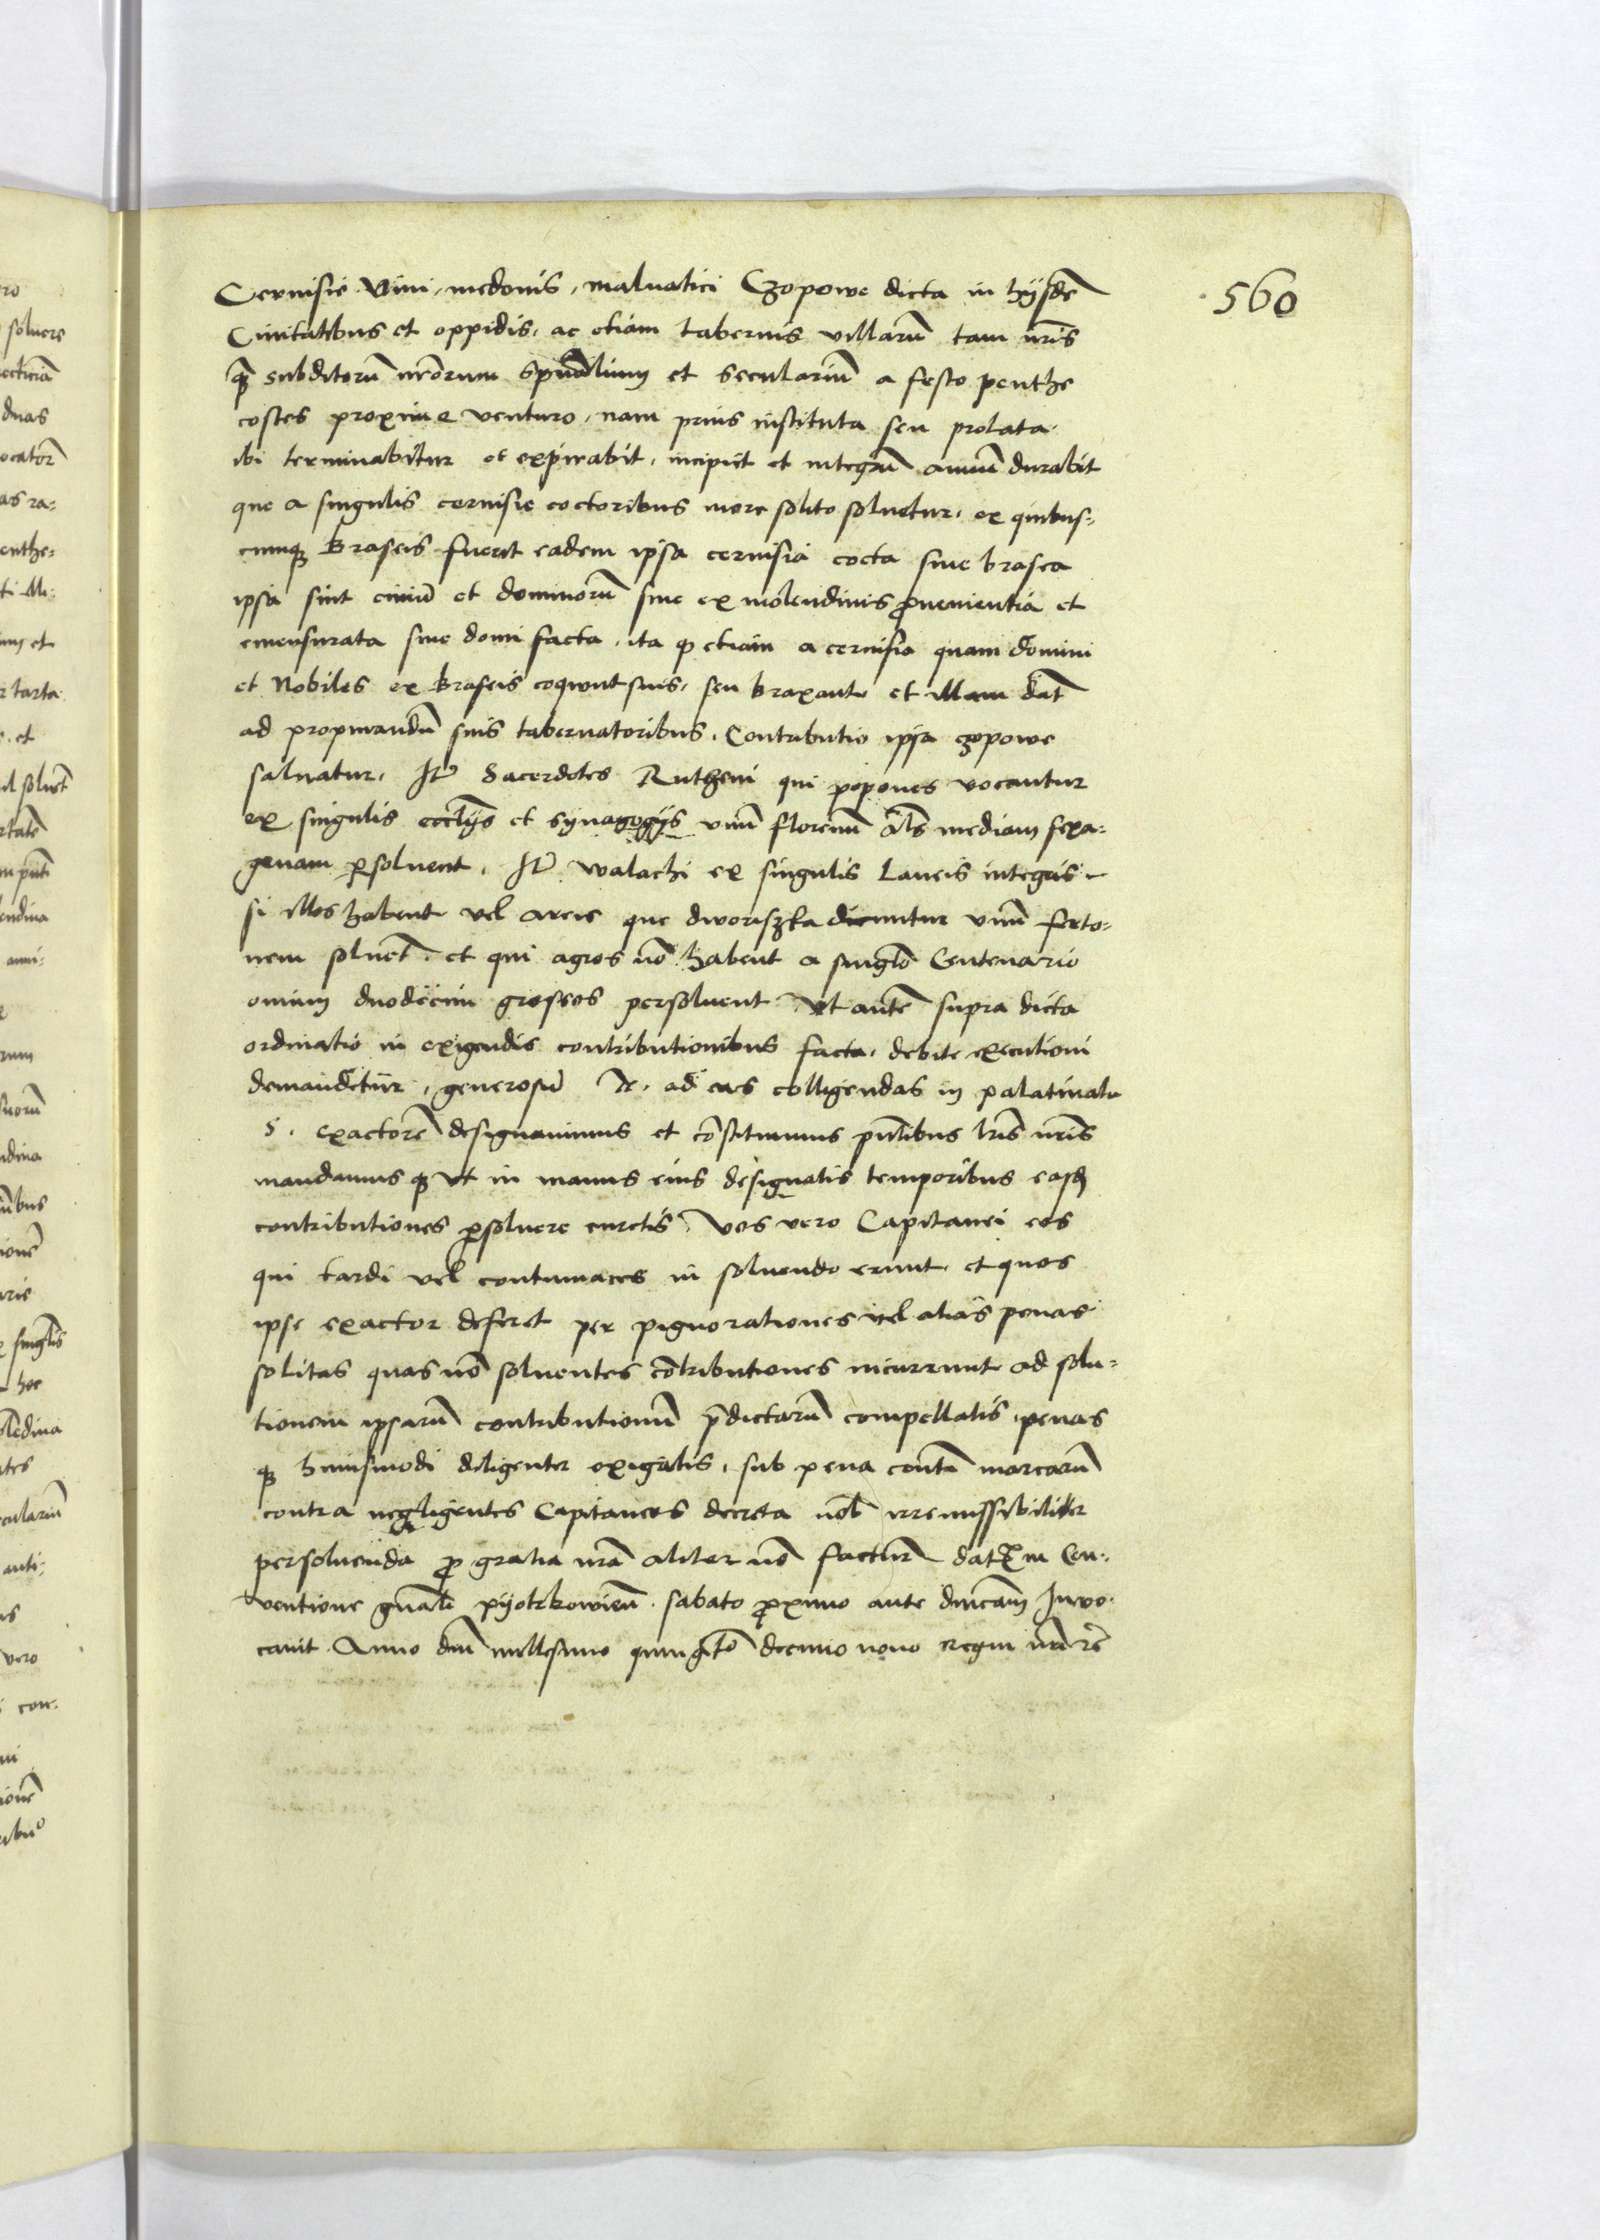 560
Cervisie Vini, medonis, malvatici Czopowe dicta in hijsdē
Civitatibus et oppidis, ac etiam tabernis villarū tam nr̄is
q̄ȝ subditorū nr̄orum spūalium et secularium a festo penthe
costes proxime venturo, nam prius instituta seu prolata
ibi terminabitur et expirabit, incipiet et integrū annū durabit
que a singulis cervisie coctoribus more solito solvetur, ex quibus-
cunqȝ Braseis fuerit eadem ipsa cervisia cocta sive brasea
ipsa sint civiū et dominorū sive ex molendinis proveniencia et
emensurata sive domi facta, ita qȝ etiam a cervisia quam domini
et Nobiles ex Braseis coqwnt suis, seu braxant et illam dāt
ad propinandū suis tabernatoribus, Contributio ipsa czopowe
salvatur, Itē Sacerdotes Rutheni qui popones vocantur
ex singulis eccl̄ijs et synagogijs unū florenū al̄s mediam sexa-
genam persolvent, Itē walachi ex singulis Laneis integris
si illos habent vel areis que dworiszka dicuntur unū ferto-
nem solvēt, et qui agros nō habent a singl̄o Centenario
ovium duodecim grossos persolvent Ut autē supra dicta
ordinatio in exigendis contributionibus facta, debite executioni
demandetur, generosū N. ad eas colligendas in palatinatu
S. exactorē designavimus et cōstituimus pn̄tibus lr̄is nr̄is
mandamus qȝ ut in manus eius designatis temporibus easdē
contributiones persolvere curetis, Vos vero Capitanei eos
qui tardi vel contumaces in solvendo erunt, et quos
ipse exactor deferet per pignorationes vel alias penas
solitas quas nō solventes cōtributiones incurrunt ad solu-
tionem ipsarū contributionū p̄dictarū compellatis, penas
qȝ huiusmodi diligenter exigatis, sub pena centū marcarū
contra negligentes Capitaneos decreta nob̄ irremissibiliter
persolvenda pro gratia nr̄a aliter nō facturi datȝ in Con-
ventione gn̄ali pijotrkowien̄ sabato proximo ante dn̄icam Invo-
cavit Anno dn̄i millesimo quingētō decimo nono regni nr̄i